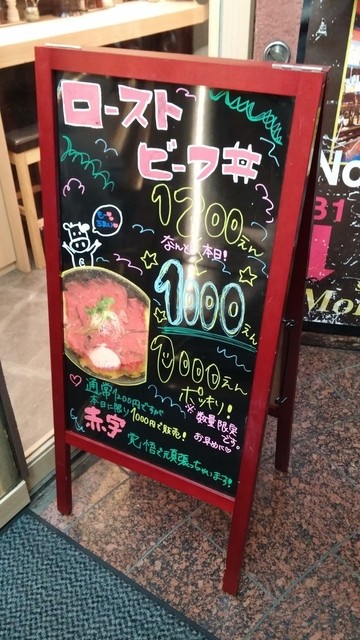 ロースト
ビーフ丼
1200えん
なんと!本日!
1000えん
1000えん
ポッキリ!
※数量限定
です。
お早めに♡
通常1200円ですが
本日に限り1000円で販売!
赤字
覚悟で頑張っちゃいます!
No
31
Mor